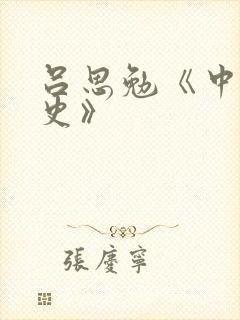 吕思勉《中
史》
張慶寧